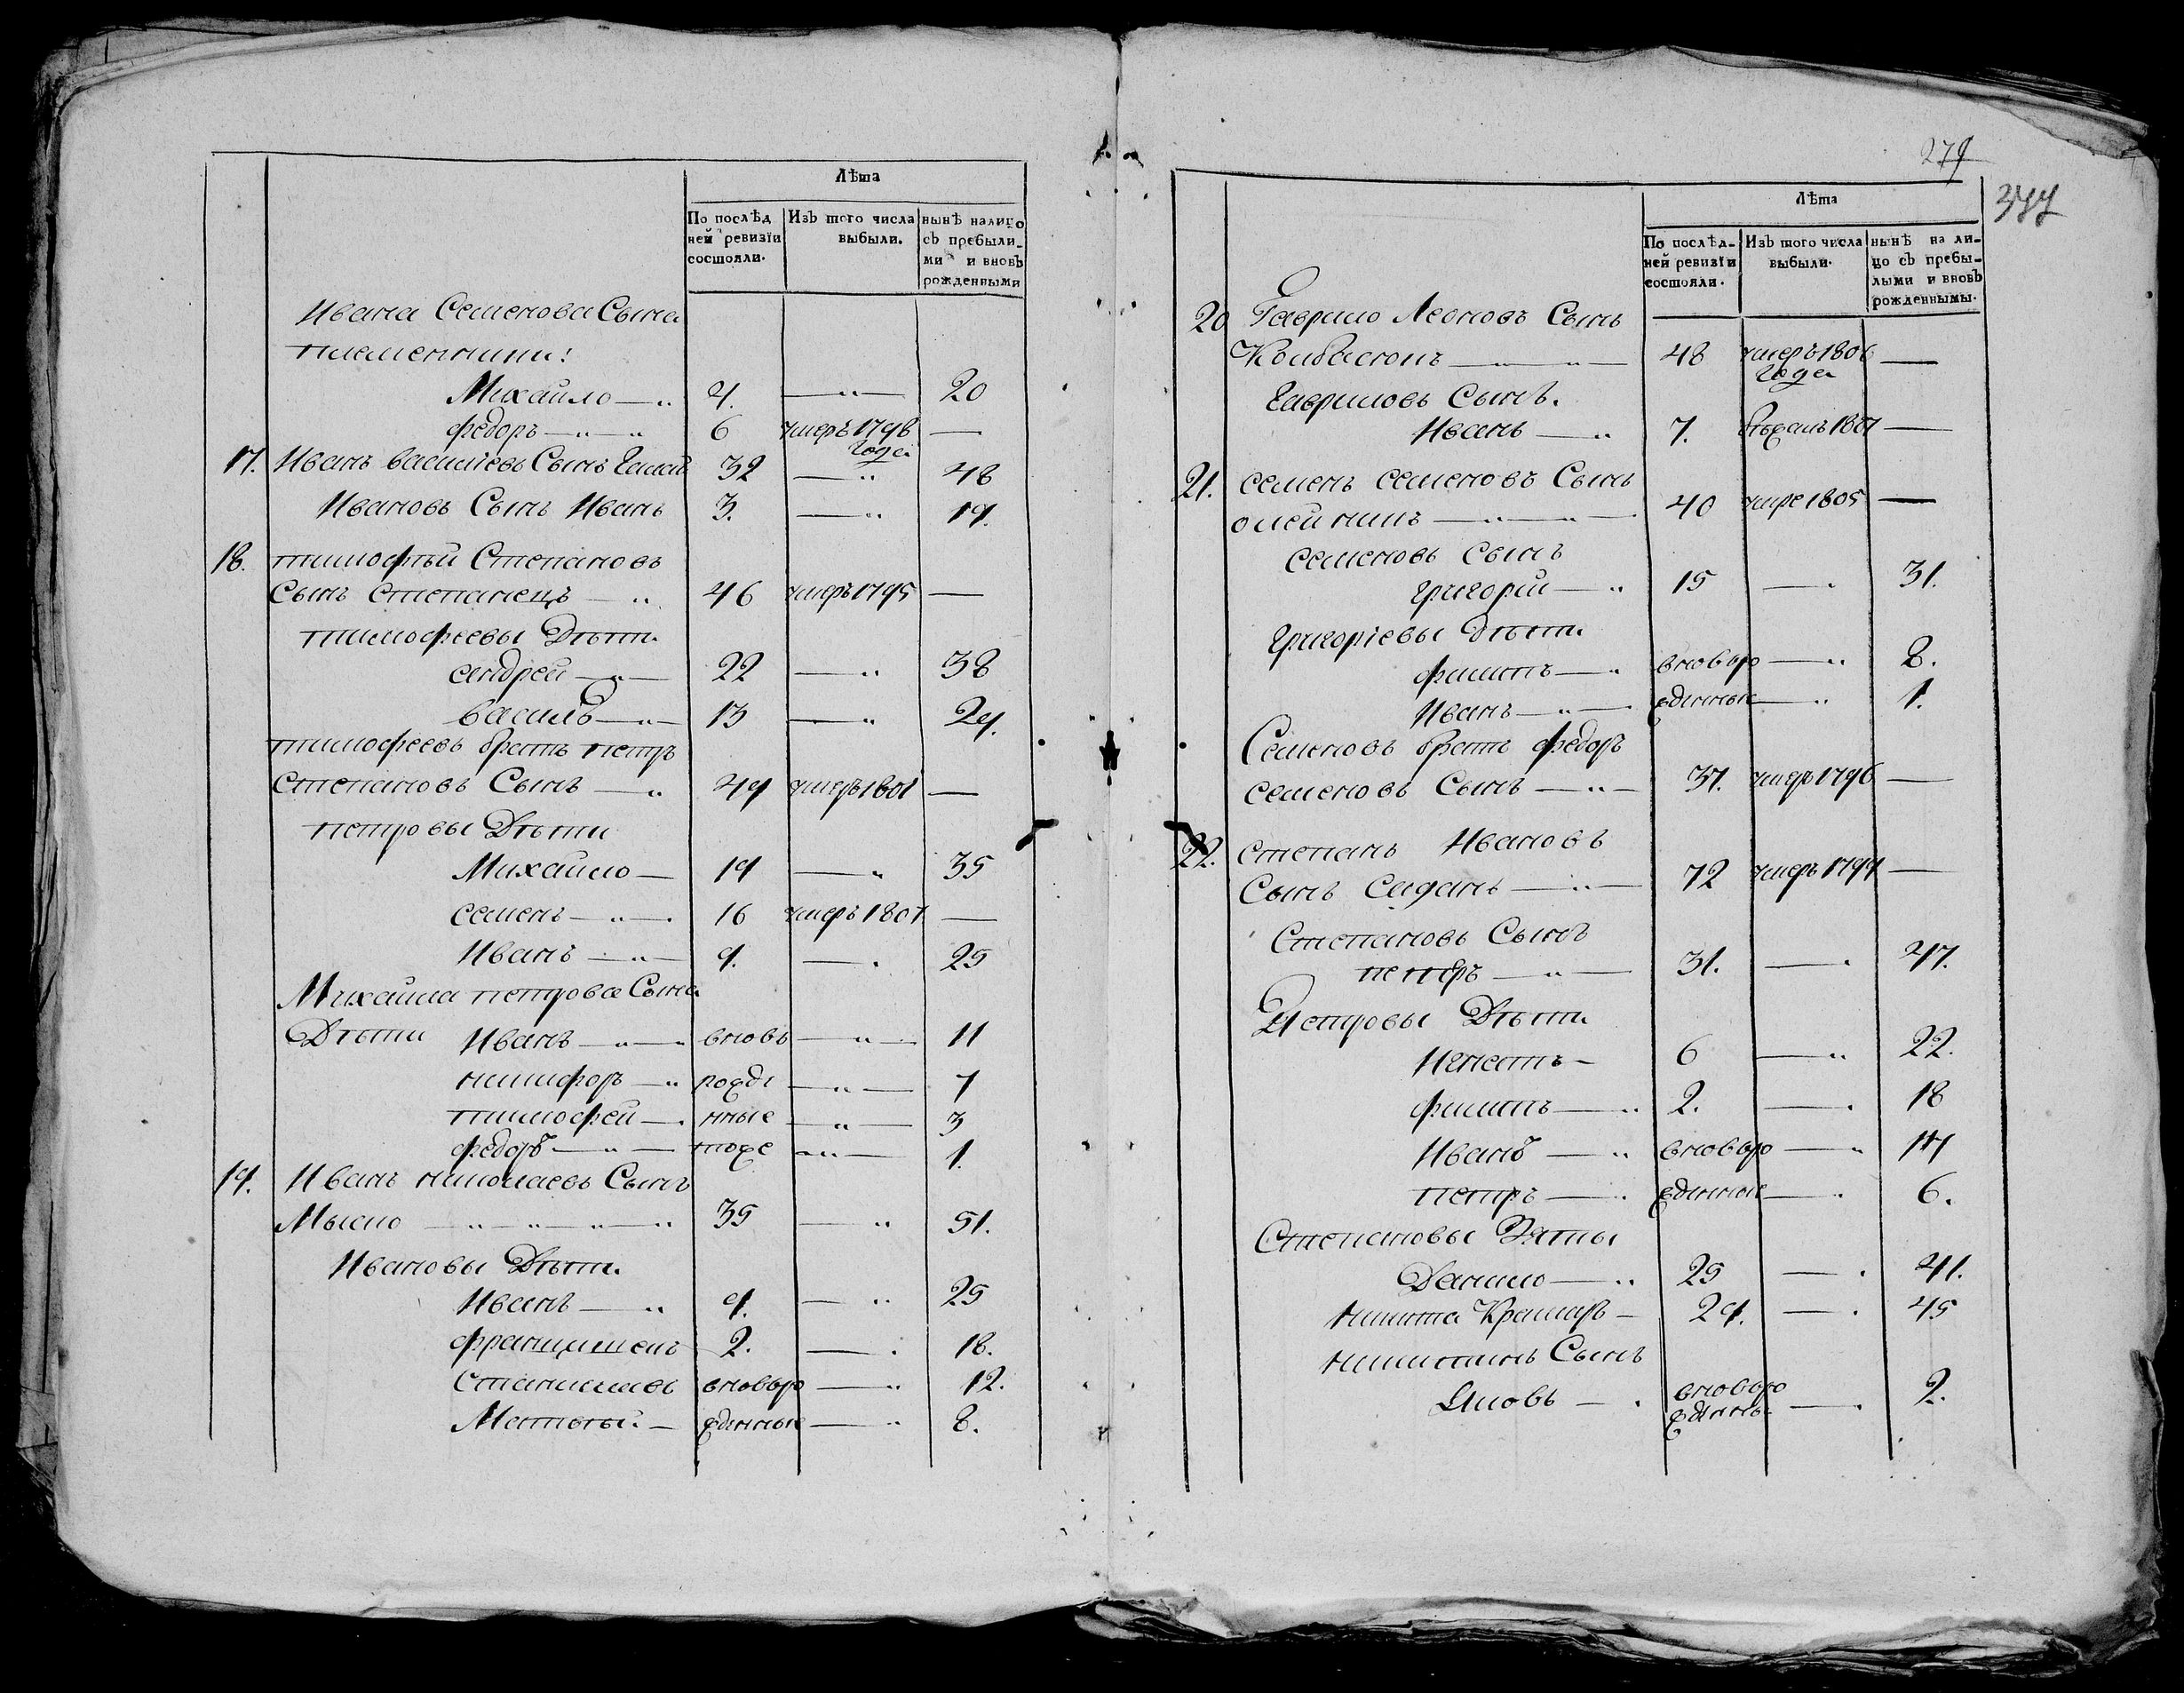 Лѣта
По послѣд
ней ревизїи
состояли.
Изъ того числа
выбыли.
нынѣ налицо
съ пребыли-
ми и вновь
рожденными
Ивана Семенова Сына
племенники:
Михайло — 4. — 20
Федоръ — 6 умеръ 1798 —
года
17. Иванъ васильевъ Сынъ 32 — 48
Ивановъ Сынъ Иванъ 3. — 19.
18. тимофѣй Степановъ
Сынъ Степанецъ — 46 умеръ 1795 —
тимофеевы Дѣти
андрей — 22 — 38
василь — 13 — 29.
тимофеевъ братъ петръ
Степановъ Сынъ — 49 умеръ 1801 —
петровы Дѣти
Михайло — 19 — 35
семенъ — 16 умеръ 1807 —
Иванъ — 9. — 25
Михайла петрова Сына
Дѣти Иванъ — вновь — 11
никифоръ — рожде — 7
тимофей — нные — 3
федоръ — тоже — 1.
19. Иванъ николаевъ Сынъ
Мысло — 35 — 51.
Ивановы Дѣти
Иванъ — 9. — 25
францишекъ 2. — 18.
Станиславъ вновьро — 12.
Матвѣй — жденные — 8.
279
377
Лѣта
По послѣд-
ней ревизїи
состояли.
Изъ того числа
выбыли.
нынѣ на ли-
цо съ пребы-
лыми и вновь
рожденнымы.
20 Гаврило Леоновъ Сынъ
48 умеръ 1806 —
года
Гавриловъ Сынъ.
Иванъ — 7. 1807 —
21. семенъ семеновъ Сынъ
олейникъ — 40 умре 1805 —
семеновъ сынъ
григорій — 15 — 31.
григорїевы дѣти
филипъ — вновьро — 8.
Иванъ — жденные — 1.
Семеновъ братъ федоръ
семеновъ Сынъ — 37. умеръ 1796 —
22. степанъ Ивановъ
Сынъ Саданъ — 72 умеръ 1799 —
Степановъ Сынъ
петръ — 31. — 47.
Петровы Дѣти
Игнатъ — 6 — 22.
филипъ — 2. — 18
Иванъ — вновьро — 14
петръ — жденные — 6.
Степановы Зятьи
Данило — 25 — 41.
никита Крамаръ — 29. — 45
никитинъ Сынъ
Яковъ — вновьро — 2.
жденны.